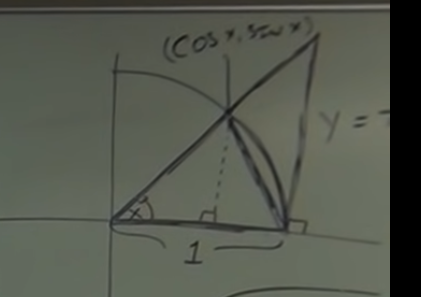 (cos x, sin x)
y =
x
1